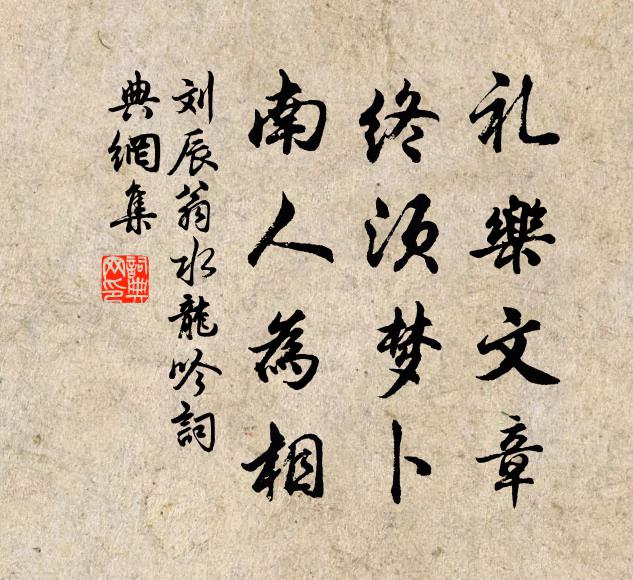 礼樂文章
终须梦卜
南人為相
刘辰翁水龍吟詞
典網集
詞典
网印